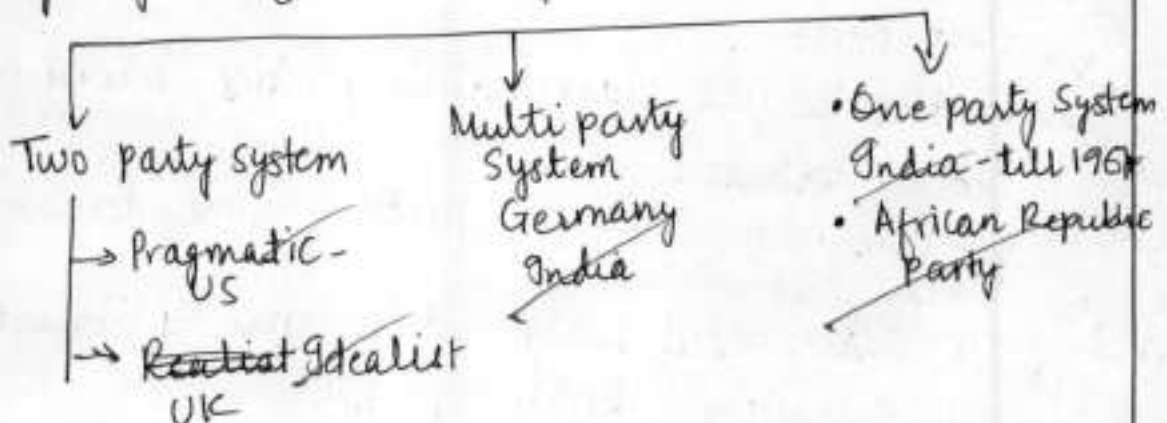 Two party system
→ Pragmatic -
US
→ Realist Idealist
UK
Multi party
System
Germany
India
• One party System
India - till 1967
• African Republic
Party